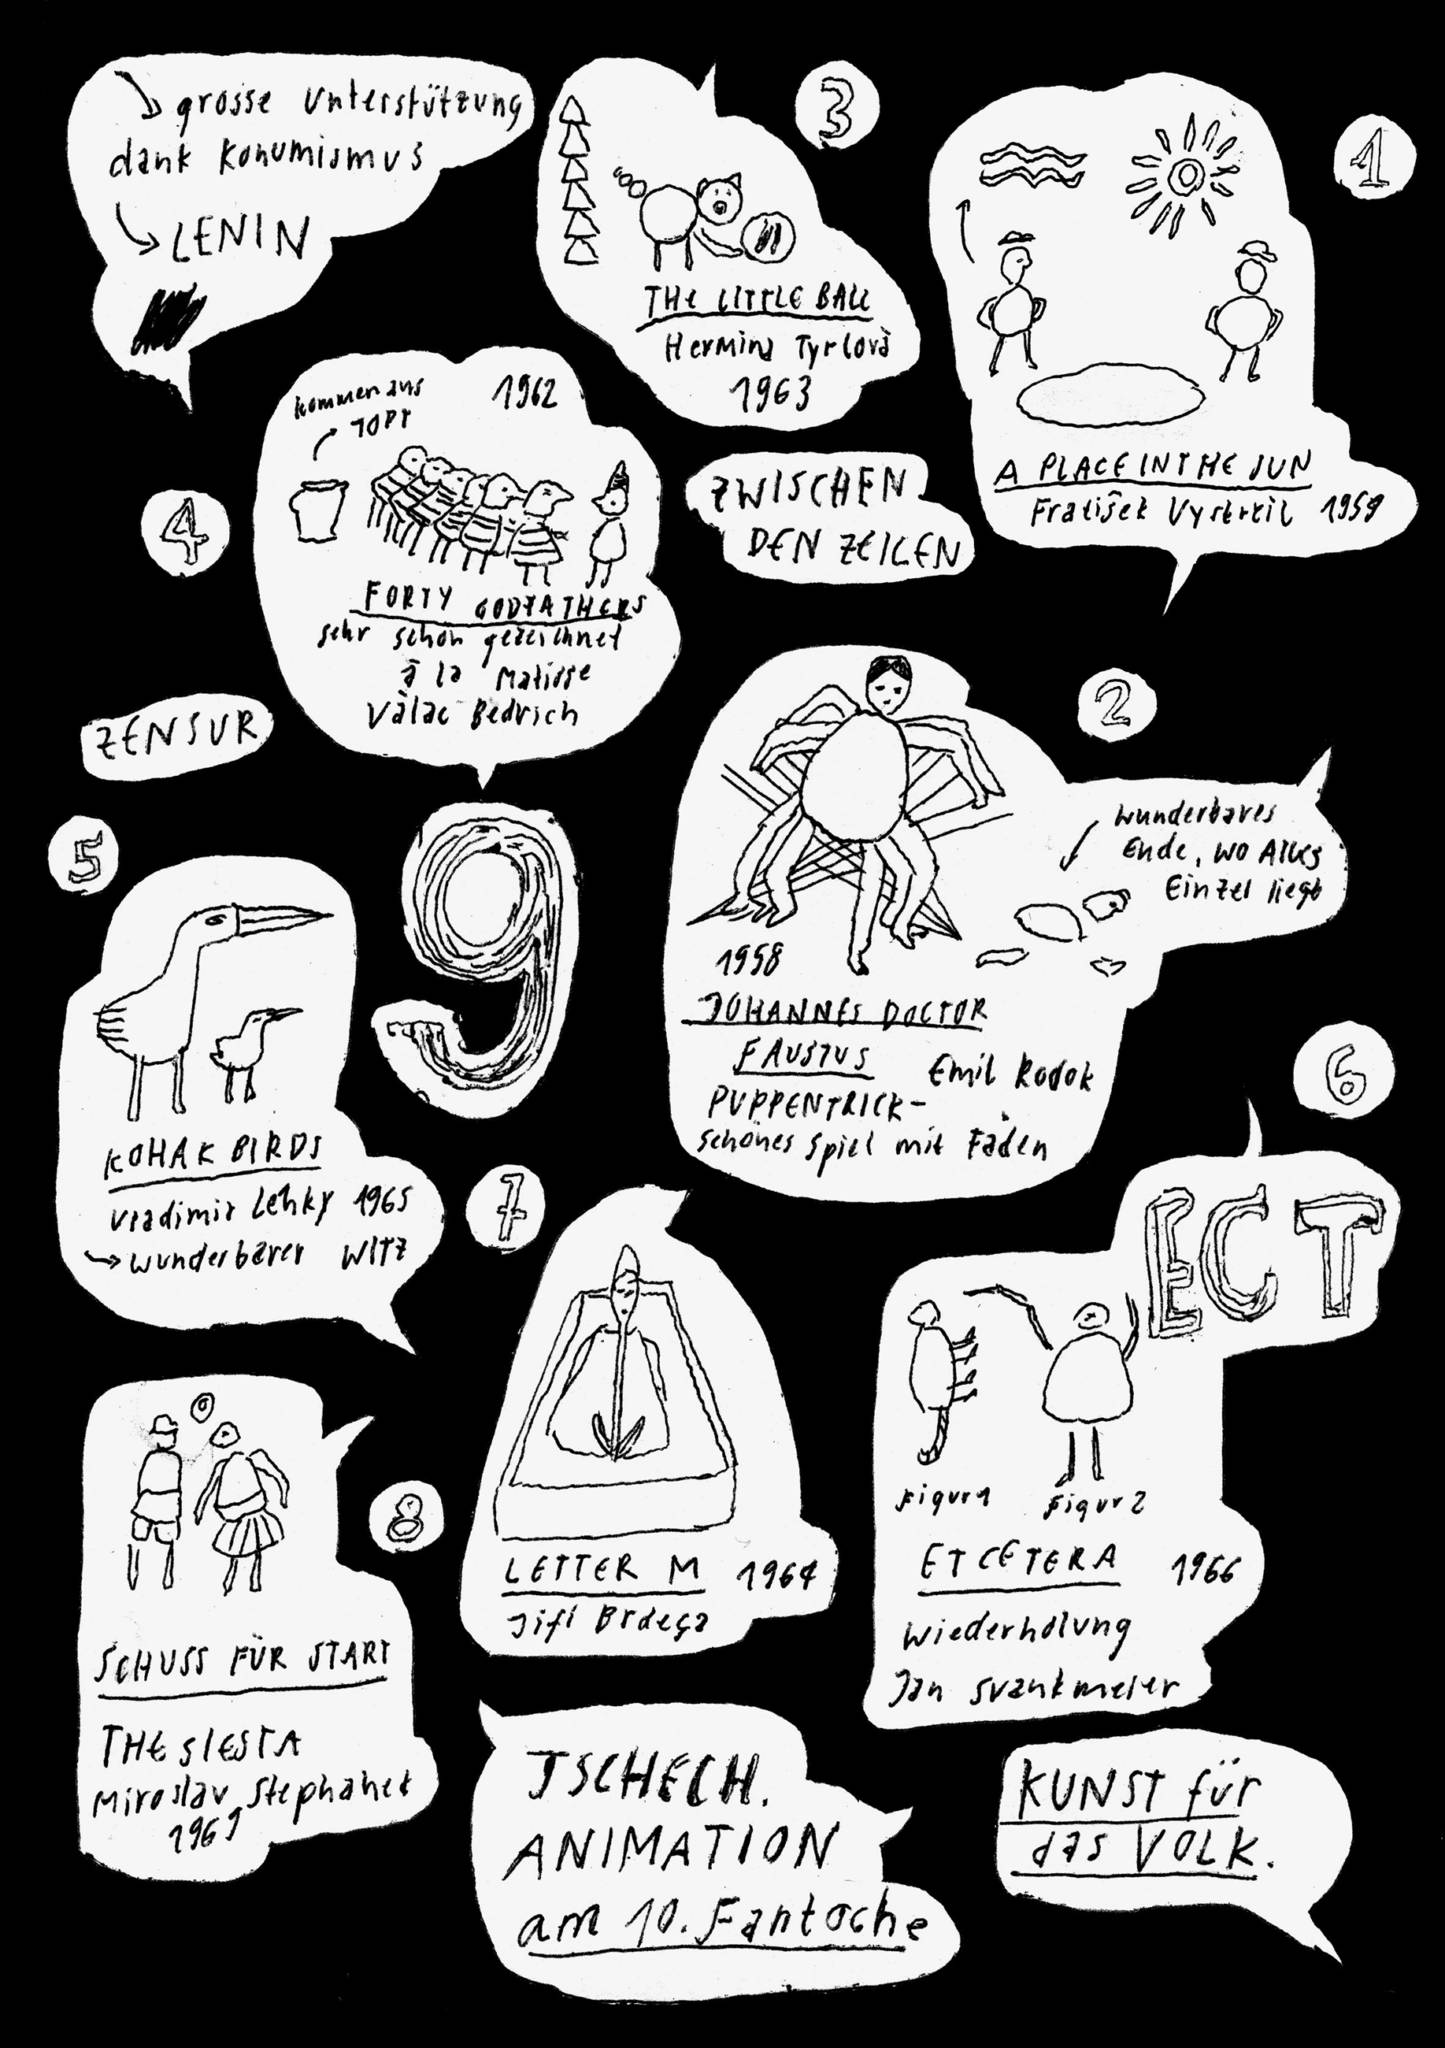 grosse Unterstützung
dank Konumismus
LENIN
3
THE LITTLE BALL
Hermina Tyrlovà
1963
1
A PLACE IN THE SUN
1959
4
kommen aus
TOPF
1962
FORTY GODFATHERS
sehr schön gezeichnet
à la Matisse
Vàlac Bedrich
ZWISCHEN
DEN ZEILEN
ZENSUR
2
wunderbares
Ende, wo Alles
Einzel liegt
1958
JOHANNES DOCTOR
FAUSTUS Emil Radok
PUPPENTRICK-
schönes Spiel mit Fäden
5
KOHAK BIRDS
Vladimir Lehky 1965
wunderbarer WITZ
9
6
ECT
Figur 1 Figur 2
ETCETERA 1966
Wiederholung
Jan Svankmeier
7
LETTER M 1964
8
SCHUSS FÜR START
THE SIESTA
Miroslav Stephanek
1969
TSCHECH.
ANIMATION
am 10. Fantoche
KUNST für
das VOLK.